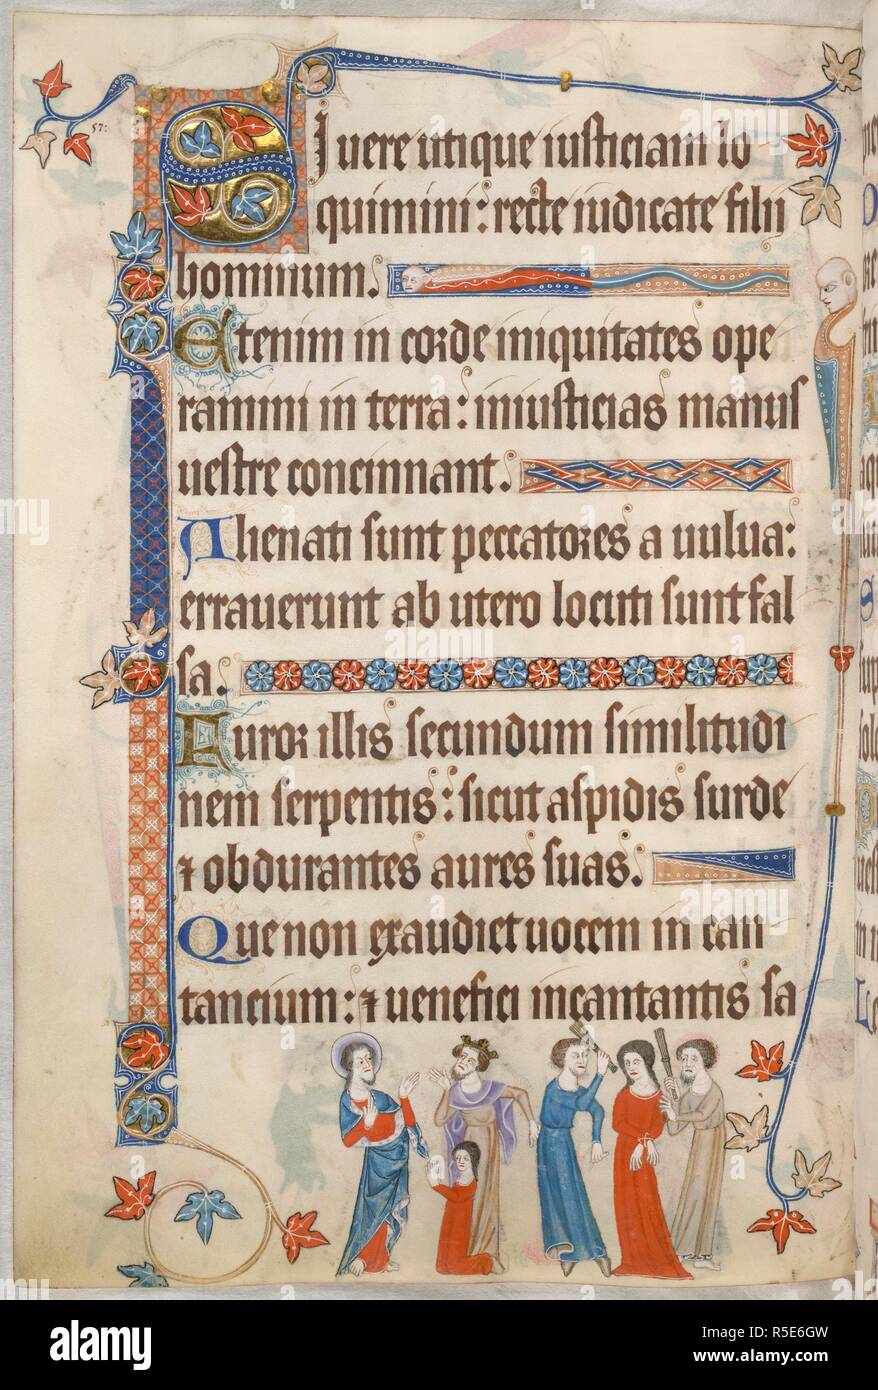 57:
Si uere utique iusticiam lo
quimini: recte iudicate filii
hominum.
Etenim in corde iniquitates ope
ramini in terra: iniusticias manus
uestre concinnant.
Alienati sunt peccatores a uulua:
errauerunt ab utero locuti sunt fal
sa.
Furor illis secundum similitudi
nem serpentis: sicut aspidis surde
⁊ obdurantes aures suas.
Que non exaudiet uocem in can
tancium: ⁊ uenefici incantantis sa
a alamy stock photo
alamy
Image ID: R5E6GW
www.alamy.com